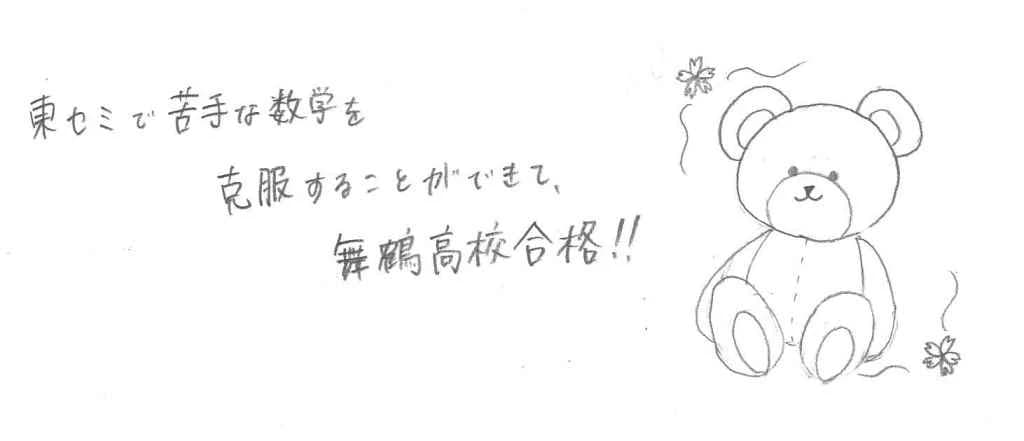 東セミで苦手な数学を
克服することができて、
舞鶴高校合格!!